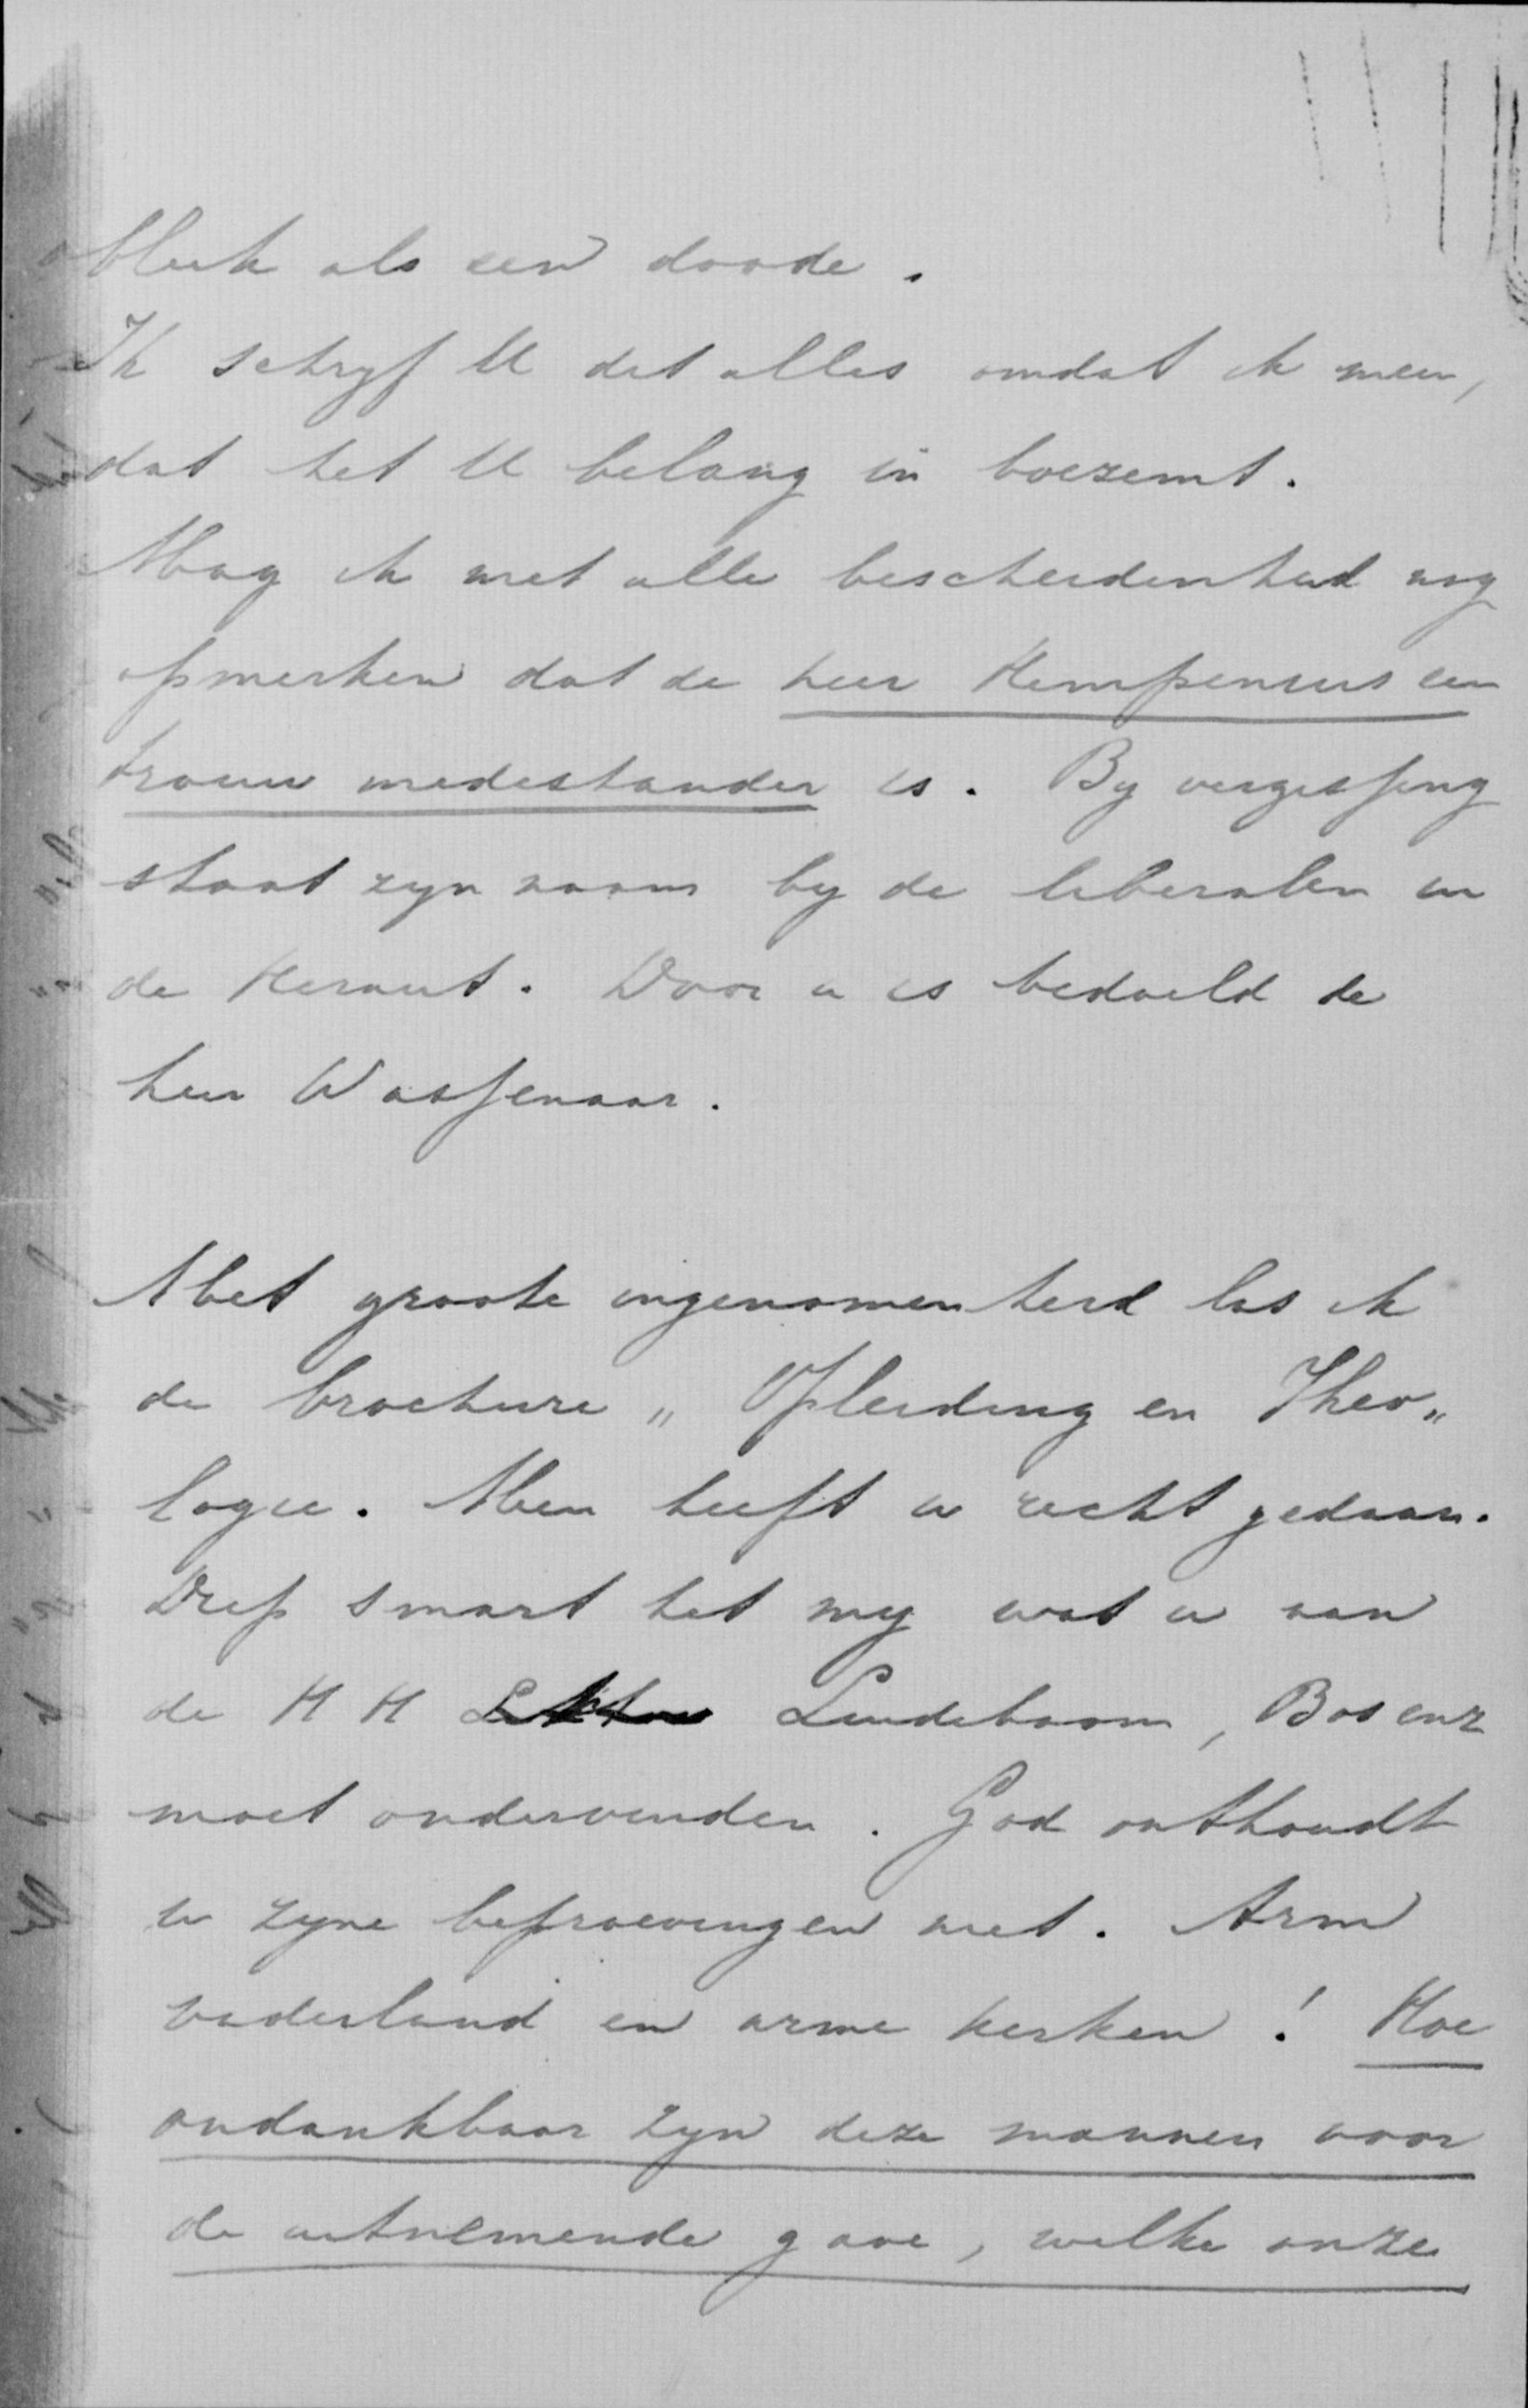 bleek als een doode.
Ik schryf U dit alles omdat ik meen,
dat het U belang in boezemt.
Mag ik met alle bescheidenheid nog
opmerken dat de heer Kempenius een
trouw medestander is. By vergissing
staat zyn naam by de liberalen in
de Heraut. Door u is bedoeld de
heer Wassenaar.
Met groote ingenomenheid las ik
de brochure „ Opleiding en Theo„
logie. Men heeft u recht gedaan.
Diep smart het my wat u van
de H H Lindeboom, Bos enz
moet ondervinden. God onthoudt
u zyne beproevingen niet. Arm
vaderland en arme kerken! Hoe
ondankbaar zyn deze mannen voor
de uitnemende gave, welke onze